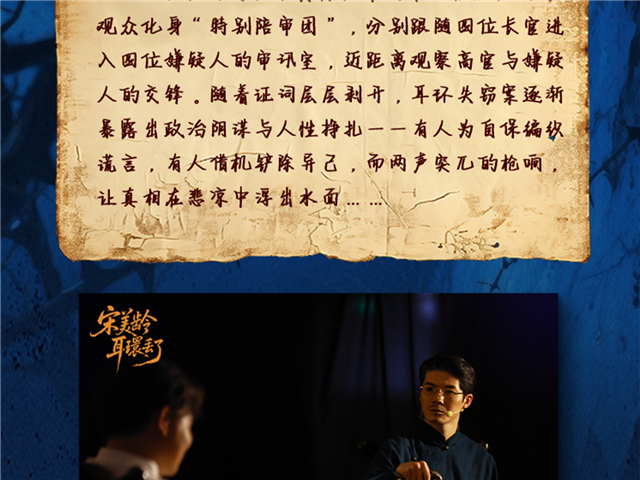 观众化身“特别陪审团”，分别跟随四位长官进
入四位嫌疑人的审讯室，近距离观察高官与嫌疑
人的交锋。随着证词层层剥开，耳环失窃案逐渐
暴露出政治阴谋与人性挣扎——有人为自保编织
谎言，有人借机铲除异己，而两声突兀的枪响，
让真相在悲凉中浮出水面……
宋美龄
耳環丢了